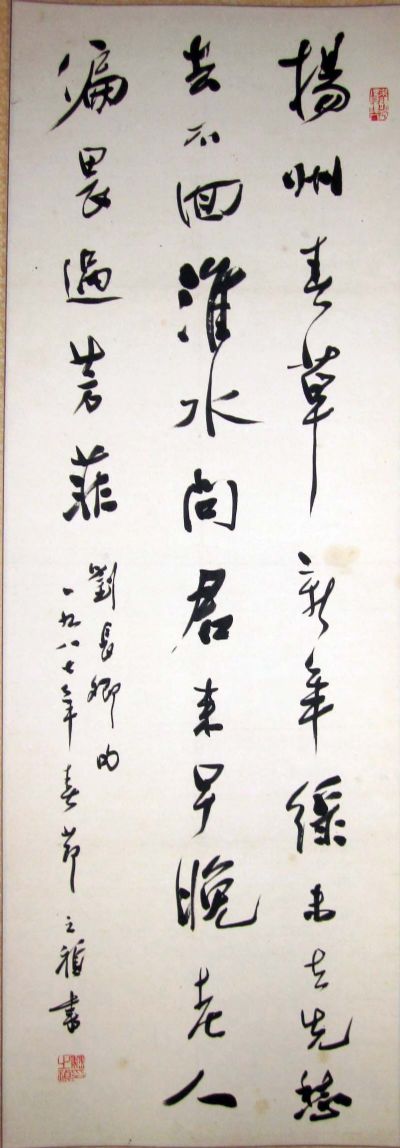 揚州春草新年緑未去先愁
去不回淮水問君来早晚老人
偏畏過芳菲
劉長卿句
一九八七年春節之福書